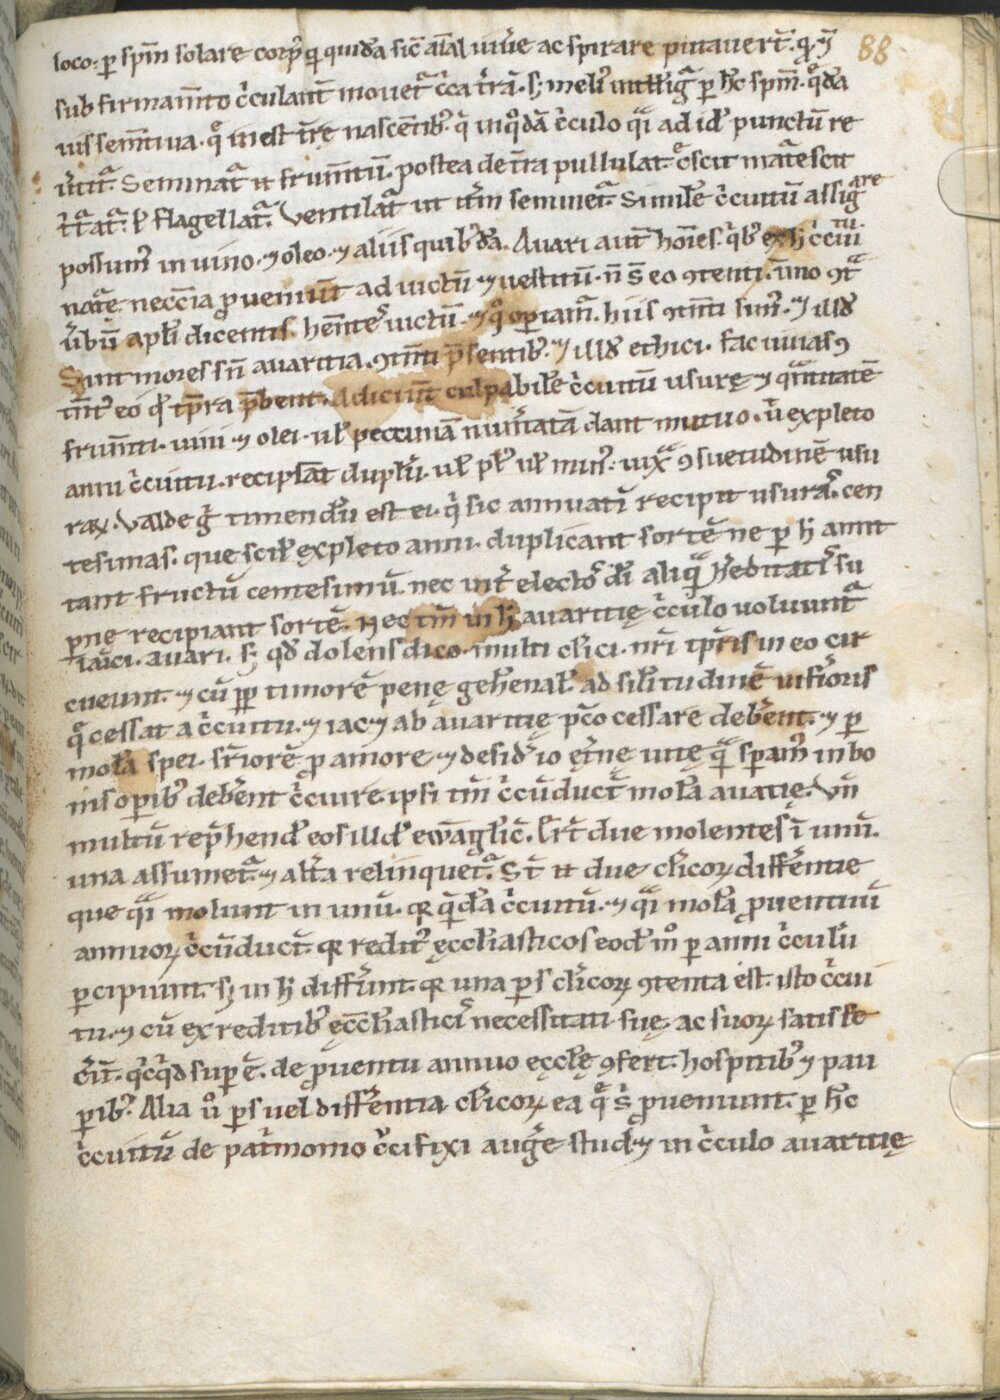 88
loco. ꝑ sp̄m solare corpꝰ qͥ quidā sic̄ aīal uiuͤe ac spirare putauer̄t. qͥ ⁊
sub firmam̄to c̓culant̄ mouet᷑ c̓ca t̓rā. sꝫ meliꝰ intellig᷑ ꝑ hͨ sp̄m. qͣdā
uis sem̄tiua. qͣ inest t̓rę nascentibꝰ. q̄ in qͦdā c̓culo qͣi ad idē punctū re
u̓tit᷑. Seminat᷑ ͛n frum̄tū. postea de t̓ra pullulat. c̓scit mat᷑escit
t̓it᷑at᷑. ł flagellat᷑. Ventilat᷑ ut it̓m seminet᷑. Similit̓ c̓cuitū assigͣre
possumꝰ in uino. ⁊ oleo. ⁊ aliis quibꝰdā. Auari aut̄ hoīes. qͥbꝰ ex h̓ c̓cui tu.
nat᷑e necc̄ia ꝓueniūt ad uictū ⁊ uestitū. n̄ s̄ eo ꝯtenti. īmo ꝯtͣ
u̓bū apłi dicentis. hent̄eſ uictū. ⁊ qͦ oꝑiam᷑. hiis ꝯtn̄ti sumꝰ. ⁊ illđ
Sint mores sn̄ auaritia. ꝯtn̄ti p̄sentibꝰ. ⁊ illđ ethici. fac uiuas ꝯ
tn̄tꝰ eo qđ tp̄ra p̄bent. Adiciūt culpabile c̓cuitū usurę ⁊ qͣntitatē
frum̄ti. uini ⁊ olei. uł peccuniā num̓atā dant mutuo. ut̓ expleto
anni c̓cuitu. recipiāt duplū. uł plꝰ uł minꝰ. iuxͣ ꝯsuetudinē usu
raꝝ. Valde g̓ timendū est ei. qͥ sic annuatī recipit usuraſ. cen
tesimas. que scił expleto anni. duplicant sortē ne ꝑ h̓ amit
tant fructū centesimū. nec int̓ electoſ di aliqͣ hereditatiſ su
pnę recipiant sortē. Nec tm̄ in h̓ auaritię c̓culo uoluunt᷑
laici. auari. sꝫ qđ dolens dico. multi clici. nr̄i tp̄ris in eo cir
cueunt. ⁊ cū ꝓp̄ timorē penę gehenał. ad siłitudinē inferioris
qͣ cessat a c̓cuitu. ⁊ iac⁊ ab auaritię pc̄o cessare deberent. ⁊ ꝑ
molā spei. supͥorē ꝓ amore ⁊ desiderio et̄nę uitę qͣ speramꝰ in bo
nis oꝑibꝰ deberent c̓cuire. ipsi tm̄ c̓cūducūt molā auaritię. Vn̄
multū rep̄hendꝰ eos illđ ewāgelic̄. Er̄t due molentes ī unū.
una assumet᷑. ⁊ alt̓a relinquet᷑. St̄ ͛n due clicoꝝ differentie
que qͣi molunt in unū. qꝛ qͣdā c̓cuitū. ⁊ qͣi molā ꝓuentuū
annuoꝝ c̓cūducūt. qꝛ redituſ ęcclesiasticos eodē mō ꝑ anni c̓culū
ꝑcipiunt. sꝫ in h̓ differūt. qꝛ una ꝑs clicoꝝ ꝯtenta est. isto c̓cui
tu. ⁊ cū ex reditibꝰ ęcclesiasticiſ necessitati suę. ac suoꝝ satisfe
cerit. qͥcqͥd suꝑ ē. de ꝓuentu annuo ęcclę ꝯfert. hospitibꝰ ⁊ pau
ꝑibꝰ. Alia u̓o ꝑs uel differentia clicoꝝ ea qͣ s̄ ꝓueniunt. ꝑ hͨ
c̓cuitū de patrimonio c̓cifixi augere stud⁊ ⁊ in c̓culo auaritię